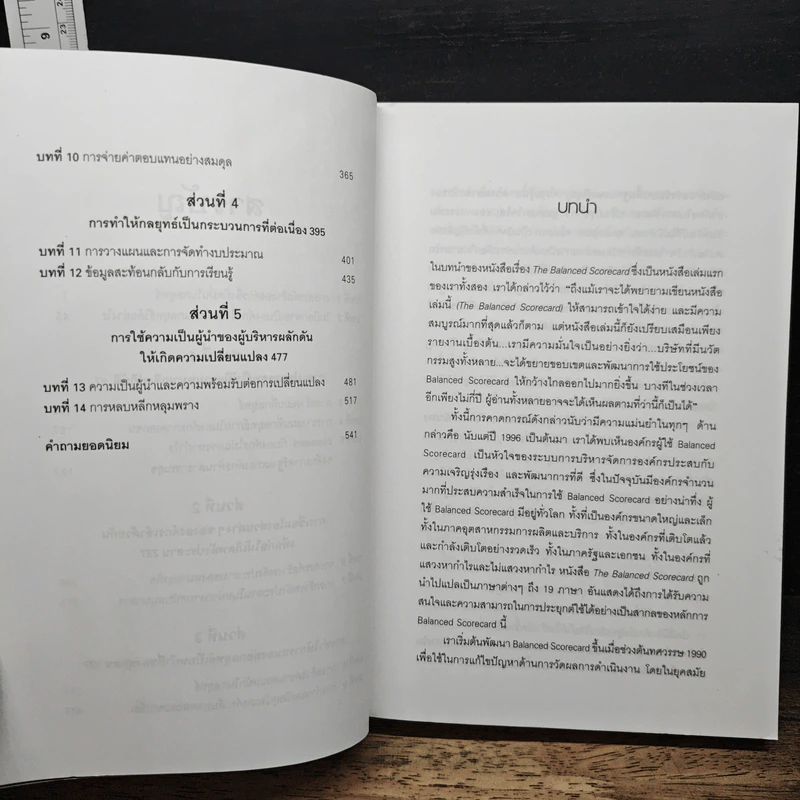 บทที่ 10 การจ่ายค่าตอบแทนอย่างสมดุล
365
ส่วนที่ 4
การทำให้กลยุทธ์เป็นกระบวนการที่ต่อเนื่อง 395
บทที่ 11 การวางแผนและการจัดทำงบประมาณ 401
บทที่ 12 ข้อมูลสะท้อนกลับกับการเรียนรู้ 435
ส่วนที่ 5
การใช้ความเป็นผู้นำของผู้บริหารผลักดัน
ให้เกิดความเปลี่ยนแปลง 477
บทที่ 13 ความเป็นผู้นำและความพร้อมรับต่อการเปลี่ยนแปลง 481
บทที่ 14 การหลบหลีกหลุมพราง 517
คำถามยอดนิยม 541
บทนำ
ในบทนำของหนังสือเรื่อง The Balanced Scorecard ซึ่งเป็นหนังสือเล่มแรก
ของเราทั้งสอง เราได้กล่าวไว้ว่า “ถึงแม้เราจะได้พยายามเขียนหนังสือ
เล่มนี้ (The Balanced Scorecard) ให้สามารถเข้าใจได้ง่าย และมีความ
สมบูรณ์มากที่สุดแล้วก็ตาม แต่หนังสือเล่มนี้ก็ยังเปรียบเสมือนเพียง
รายงานเบื้องต้น...เรามีความมั่นใจเป็นอย่างยิ่งว่า...บริษัทที่มีนวัต
กรรมสูงทั้งหลาย...จะได้ขยายขอบเขตและพัฒนาการใช้ประโยชน์ของ
Balanced Scorecard ให้กว้างไกลออกไปมากยิ่งขึ้น บางทีในช่วงเวลา
อีกเพียงไม่กี่ปี ผู้อ่านทั้งหลายอาจจะได้เห็นผลตามที่ว่านี้ก็เป็นได้”
ทั้งนี้การคาดการณ์ดังกล่าวนับว่ามีความแม่นยำในทุกๆ ด้าน
กล่าวคือ นับแต่ปี 1996 เป็นต้นมา เราได้พบเห็นองค์กรผู้ใช้ Balanced
Scorecard เป็นหัวใจของระบบการบริหารจัดการองค์กรประสบกับ
ความเจริญรุ่งเรือง และพัฒนาการที่ดี ซึ่งในปัจจุบันมีองค์กรจำนวน
มากที่ประสบความสำเร็จในการใช้ Balanced Scorecard อย่างน่าทึ่ง ผู้
ใช้ Balanced Scorecard มีอยู่ทั่วโลก ทั้งที่เป็นองค์กรขนาดใหญ่และเล็ก
ทั้งในภาคอุตสาหกรรมการผลิตและบริการ ทั้งในองค์กรที่เติบโตแล้ว
และกำลังเติบโตอย่างรวดเร็ว ทั้งในภาครัฐและเอกชน ทั้งในองค์กรที่
แสวงหากำไรและไม่แสวงหากำไร หนังสือ The Balanced Scorecard ถูก
นำไปแปลเป็นภาษาต่างๆ ถึง 19 ภาษา อันแสดงได้ถึงการได้รับความ
สนใจและความสามารถในการประยุกต์ใช้ได้อย่างเป็นสากลของหลักการ
Balanced Scorecard นี้
เราเริ่มต้นพัฒนา Balanced Scorecard ขึ้นเมื่อช่วงต้นทศวรรษ 1990
เพื่อใช้ในการแก้ไขปัญหาด้านการวัดผลการดำเนินงาน โดยในยุคสมัย